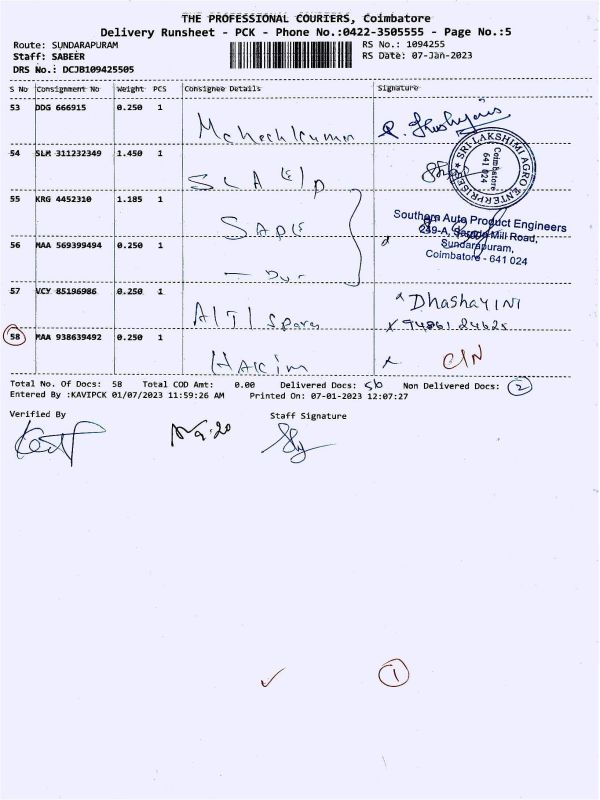 THE PROFESSIONAL COURIERS, Coimbatore
Delivery Runsheet - PCK - Phone No.:0422-3505555 - Page No.:5
Route: SUNDARAPURAM
Staff: SABEER
DRS No.: DCJB109425505
RS No.: 1094255
RS Date: 07-Jan-2023
S No Consignment No Weight PCS Consignee Details Signature
53 DDG 666915 0.250 1
54 SLM 311232349 1.450 1
SRI LAKSHMI AGRO ENTERPRISES
Coimbatore
641 024
55 KRG 4452310 1.185 1
SAPE
Southern Auto Product Engineers
249-A, Mill Road,
Sundarapuram,
Coimbatore - 641 024
56 MAA 569399494 0.250 1
57 VCY 85196986 0.250 1
ATJ Spares
Dhashayini
58 MAA 938639492 0.250 1
HAKIM
Total No. Of Docs: 58 Total COD Amt: 0.00 Delivered Docs: 56 Non Delivered Docs: 2
Entered By :KAVIPCK 01/07/2023 11:59:26 AM Printed On: 07-01-2023 12:07:27
Verified By Staff Signature
1